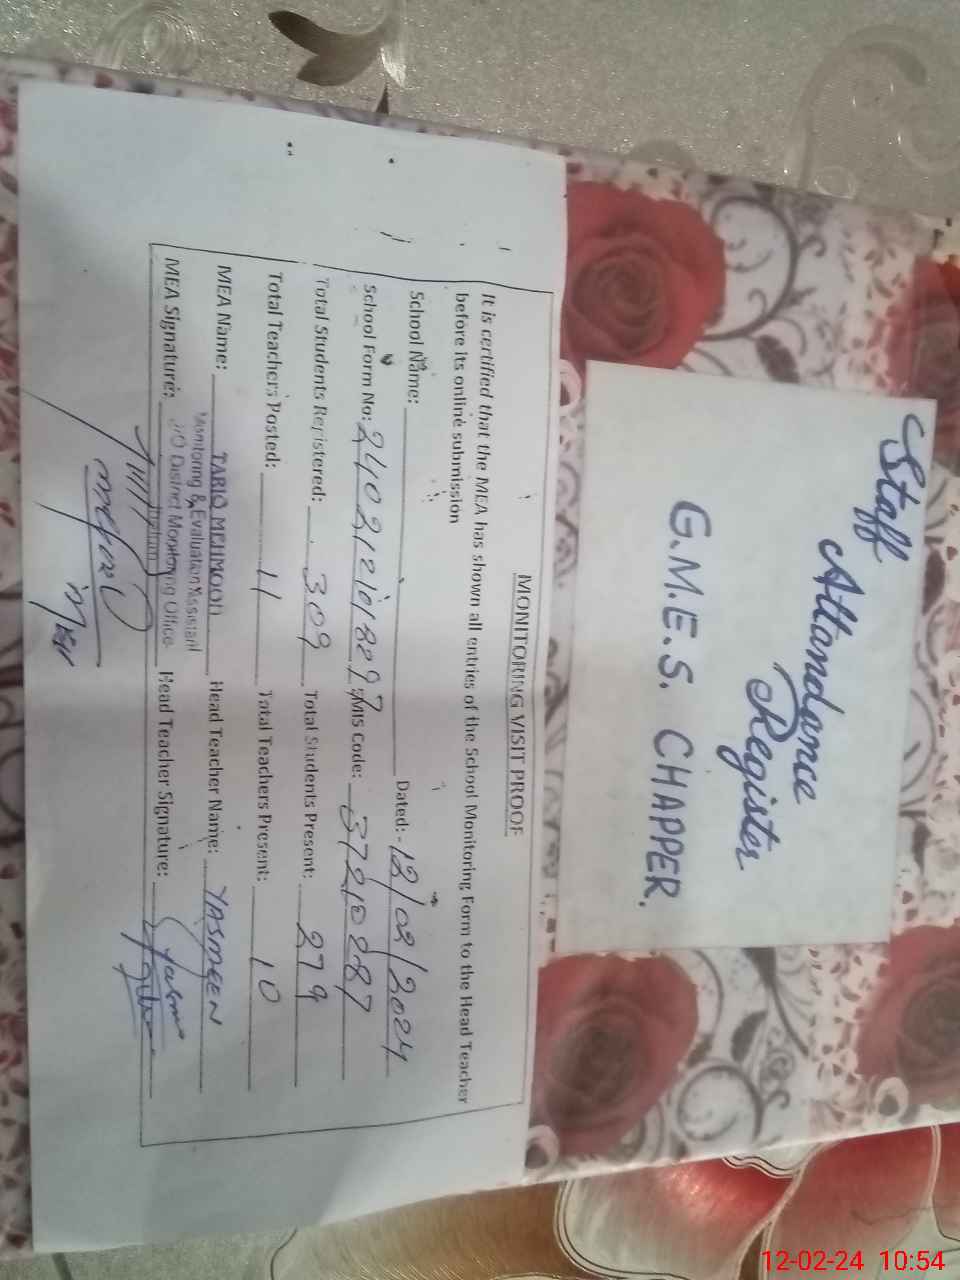 Staff
Attandance
Register
G.M.E.S. CHAPPER.
MONITORING VISIT PROOF
It is certified that the MEA has shown all entries of the School Monitoring Form to the Head Teacher
before its online submission
School Name: Dated:- 12/02/2024
School Form No: EMIS Code:
Total Students Registered: 309 Total Students Present: 279
Total Teachers Posted: 11 Total Teachers Present: 10
MEA Name: TARIQ MEHMOOD Head Teacher Name: YASMEEN
Monitoring & Evaluation Assistant
MEA Signature: District Monitoring Office Head Teacher Signature:
12-02-24 10:54